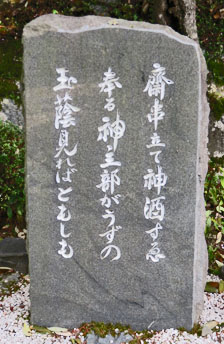 齋串立て神酒すゑ
奉る神主部がうずの
玉蔭見ればともしも